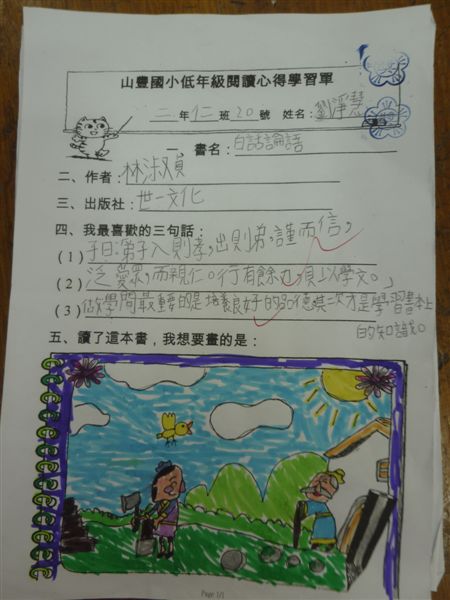 山豐國小低年級閱讀心得學習單
二年仁班20號 姓名:劉淨慧
一、書名:白話論語
二、作者:林淑貞
三、出版社:世一文化
四、我最喜歡的三句話:
(1)子曰:弟子入則孝,出則弟,謹而信,
(2)泛愛眾,而親仁。行有餘力,則以學文。」
(3)做學問最重要的是培養良好的品德其次才是學習書本上
的知識。
五、讀了這本書,我想要畫的是:
Page 1/1